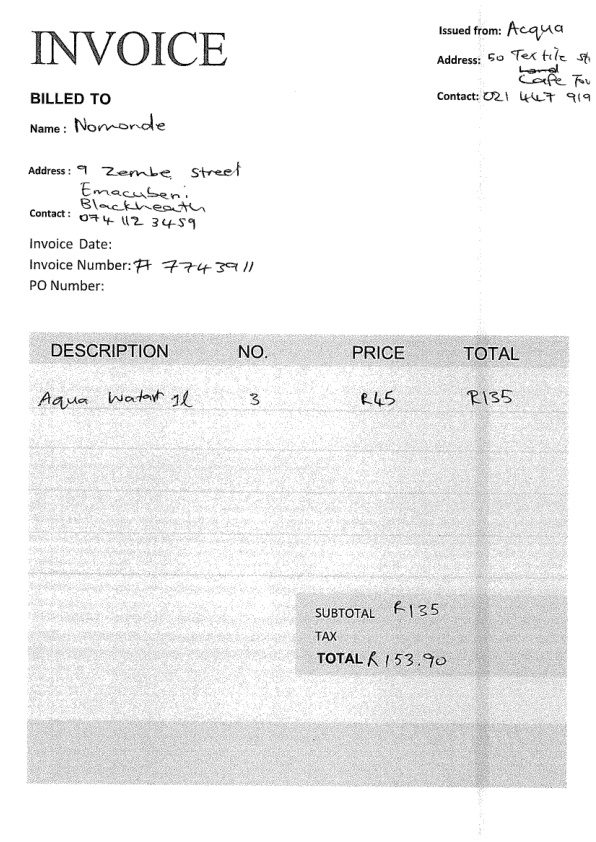 INVOICE
Issued from: Acqua
Address: 50 Textile St
Cafe Tow
Contact: 021 447 919
BILLED TO
Name : Nomonde
Address : 9 Zembe Street
Emacubeni
Blackheath
Contact : 074 112 3459
Invoice Date:
Invoice Number: # 7743911
PO Number:
DESCRIPTION NO. PRICE TOTAL
Aqua Watart 1l 3 R45 R135
SUBTOTAL R135
TAX
TOTAL R153.90